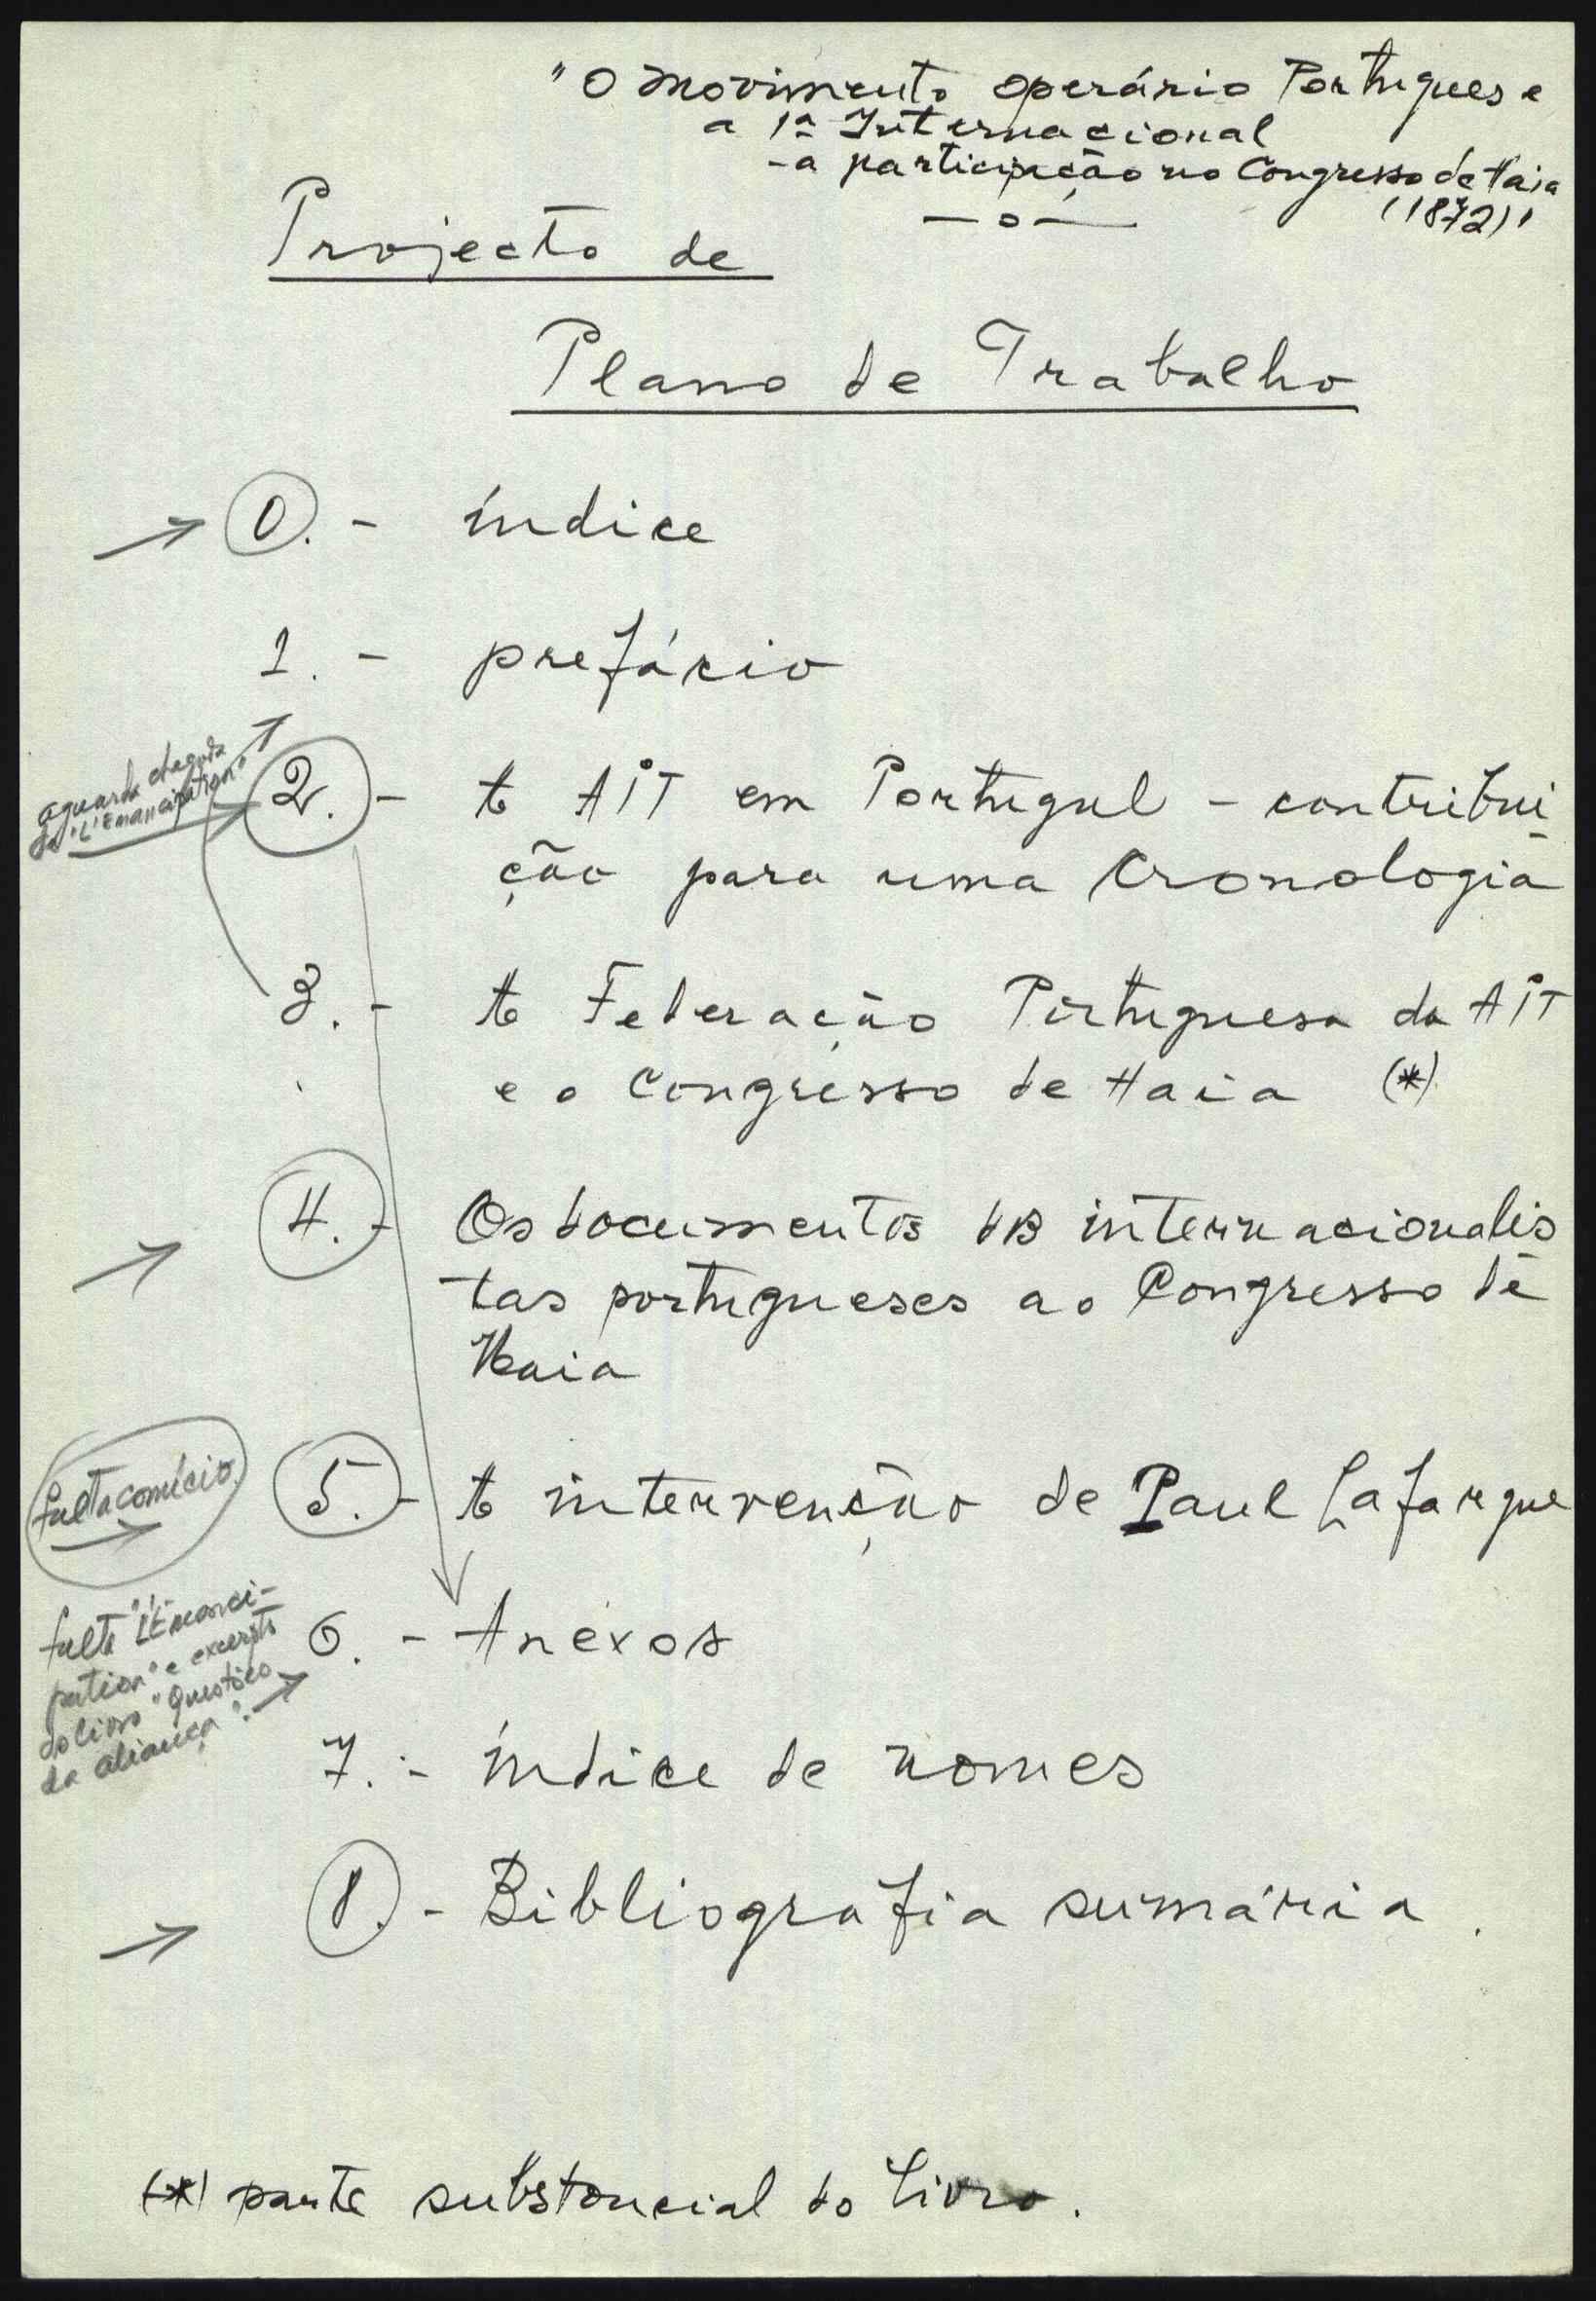 "O Movimento Operário Portugues e
a 1ª Internacional
- a participação no Congresso de Haia
(1872)"
—o—
Projecto de
Plano de Trabalho
0. - índice
1. - prefácio
aguarda chegada
de "L'Emancipation"
2. - A AIT em Portugal - contribui
ção para uma Cronologia
3. - A Federação Portuguesa da AIT
e o Congresso de Haia (*)
4. - Os documentos dos internacionalis
tas portugueses ao Congresso de
Haia
falta comício.
5. - A intervenção de Paul Lafargue
falta "L'Emanci-
pation" e excerpto
do livro "Questões
da aliança".
6. - Anexos
7. - índice de nomes
8. - Bibliografia sumária.
(*) parte substancial do Livro.